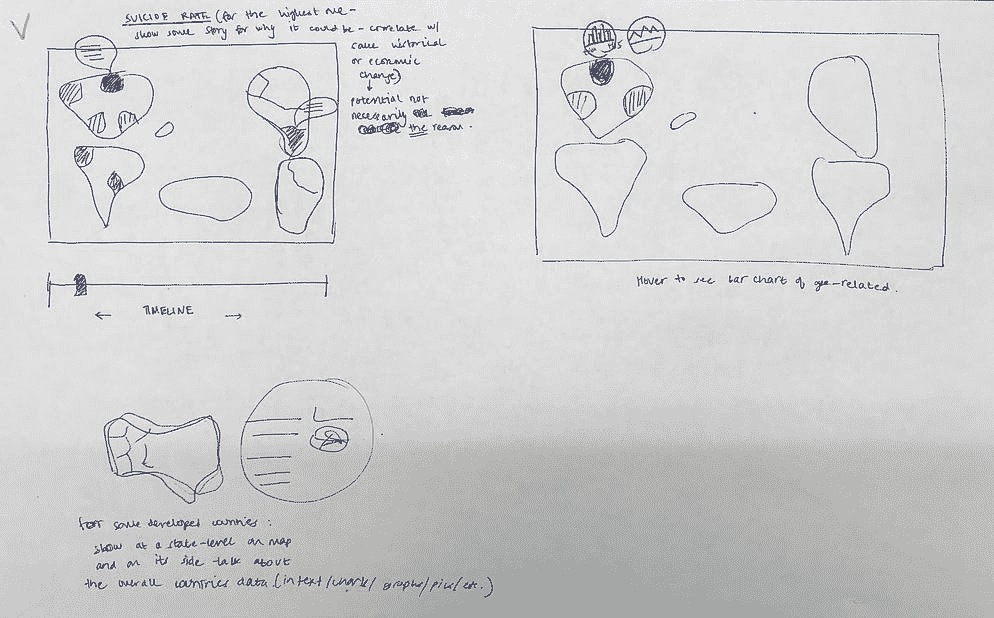 V
SUICIDE RATE (for the highest one -
show some story for why it could be - correlate w/
some historical
or economic
change)
potential not
necessarily
the reason.
TIMELINE
Hover to see bar chart of -related.
for some developed countries :
show at a state-level on map
and on its side talk about
the overall countries data (in text/charts/ graphs/pics/etc.)